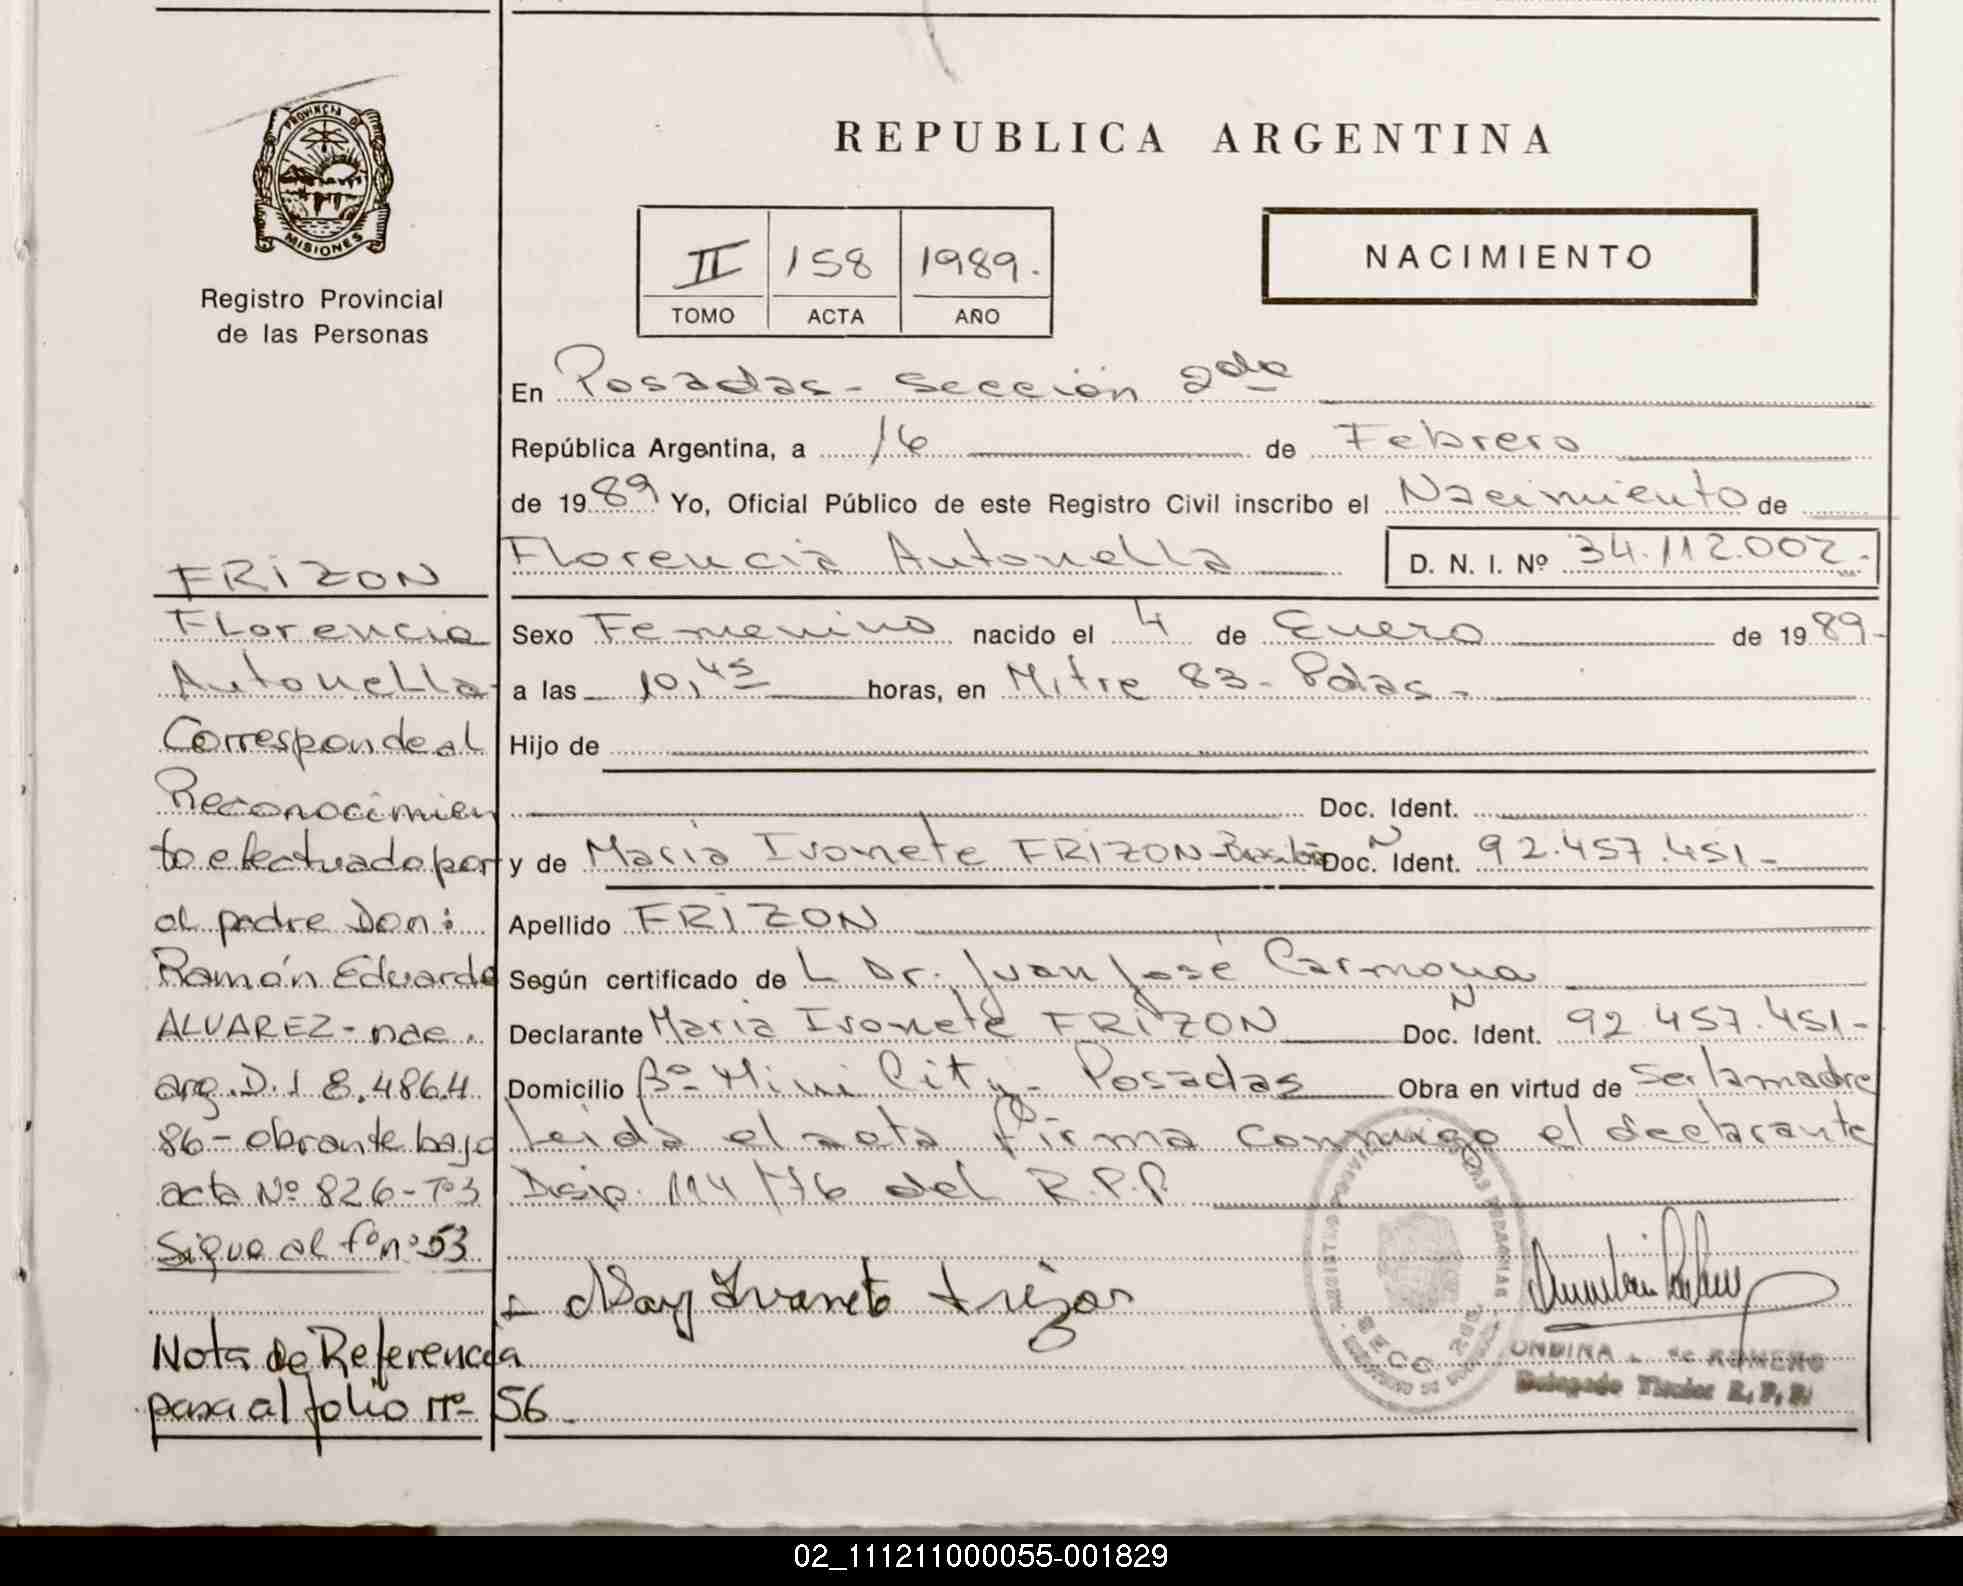 PROVINCIA DE
MISIONES
Registro Provincial
de las Personas
REPUBLICA ARGENTINA
II 158 1989.
TOMO ACTA AÑO
NACIMIENTO
En Posadas - Sección 2da
República Argentina, a 16 de Febrero
de 1989 Yo, Oficial Público de este Registro Civil inscribo el Nacimiento de
Florencia Antonella D. N. I. Nº 34.112.002.-
Sexo Femenino nacido el 4 de Enero de 1989.-
a las 10,45 horas, en Mitre 83 - Pdas.-
Hijo de
Doc. Ident.
y de Maria Ivonete FRIZON - Doc. N Ident. 92.457.451 -
Apellido FRIZON
Según certificado de L Dr. Juan José Carmona
Declarante Maria Ivonete FRIZON Doc. N Ident. 92.457.451 -
Domicilio Bº Mini City - Posadas Obra en virtud de Ser la madre
Leida el acta firma conmigo el declarante
Disp. 114/76 del R.P.P.
FRIZON
Florencia
Antonella -
Corresponde al
Reconocimien
to efectuado por
el padre Don:
Ramón Eduardo
ALVAREZ - nac.
arg. D.I 8.486.4
86 - obrante bajo
acta Nº 826 - Tº3
Sigue al fº nº 53
Nota de Referencia
pasa al folio nº 56
SECC 2DA
ONDINA de ROMERO
Delegado Titular R. P. P.
02_111211000055-001829